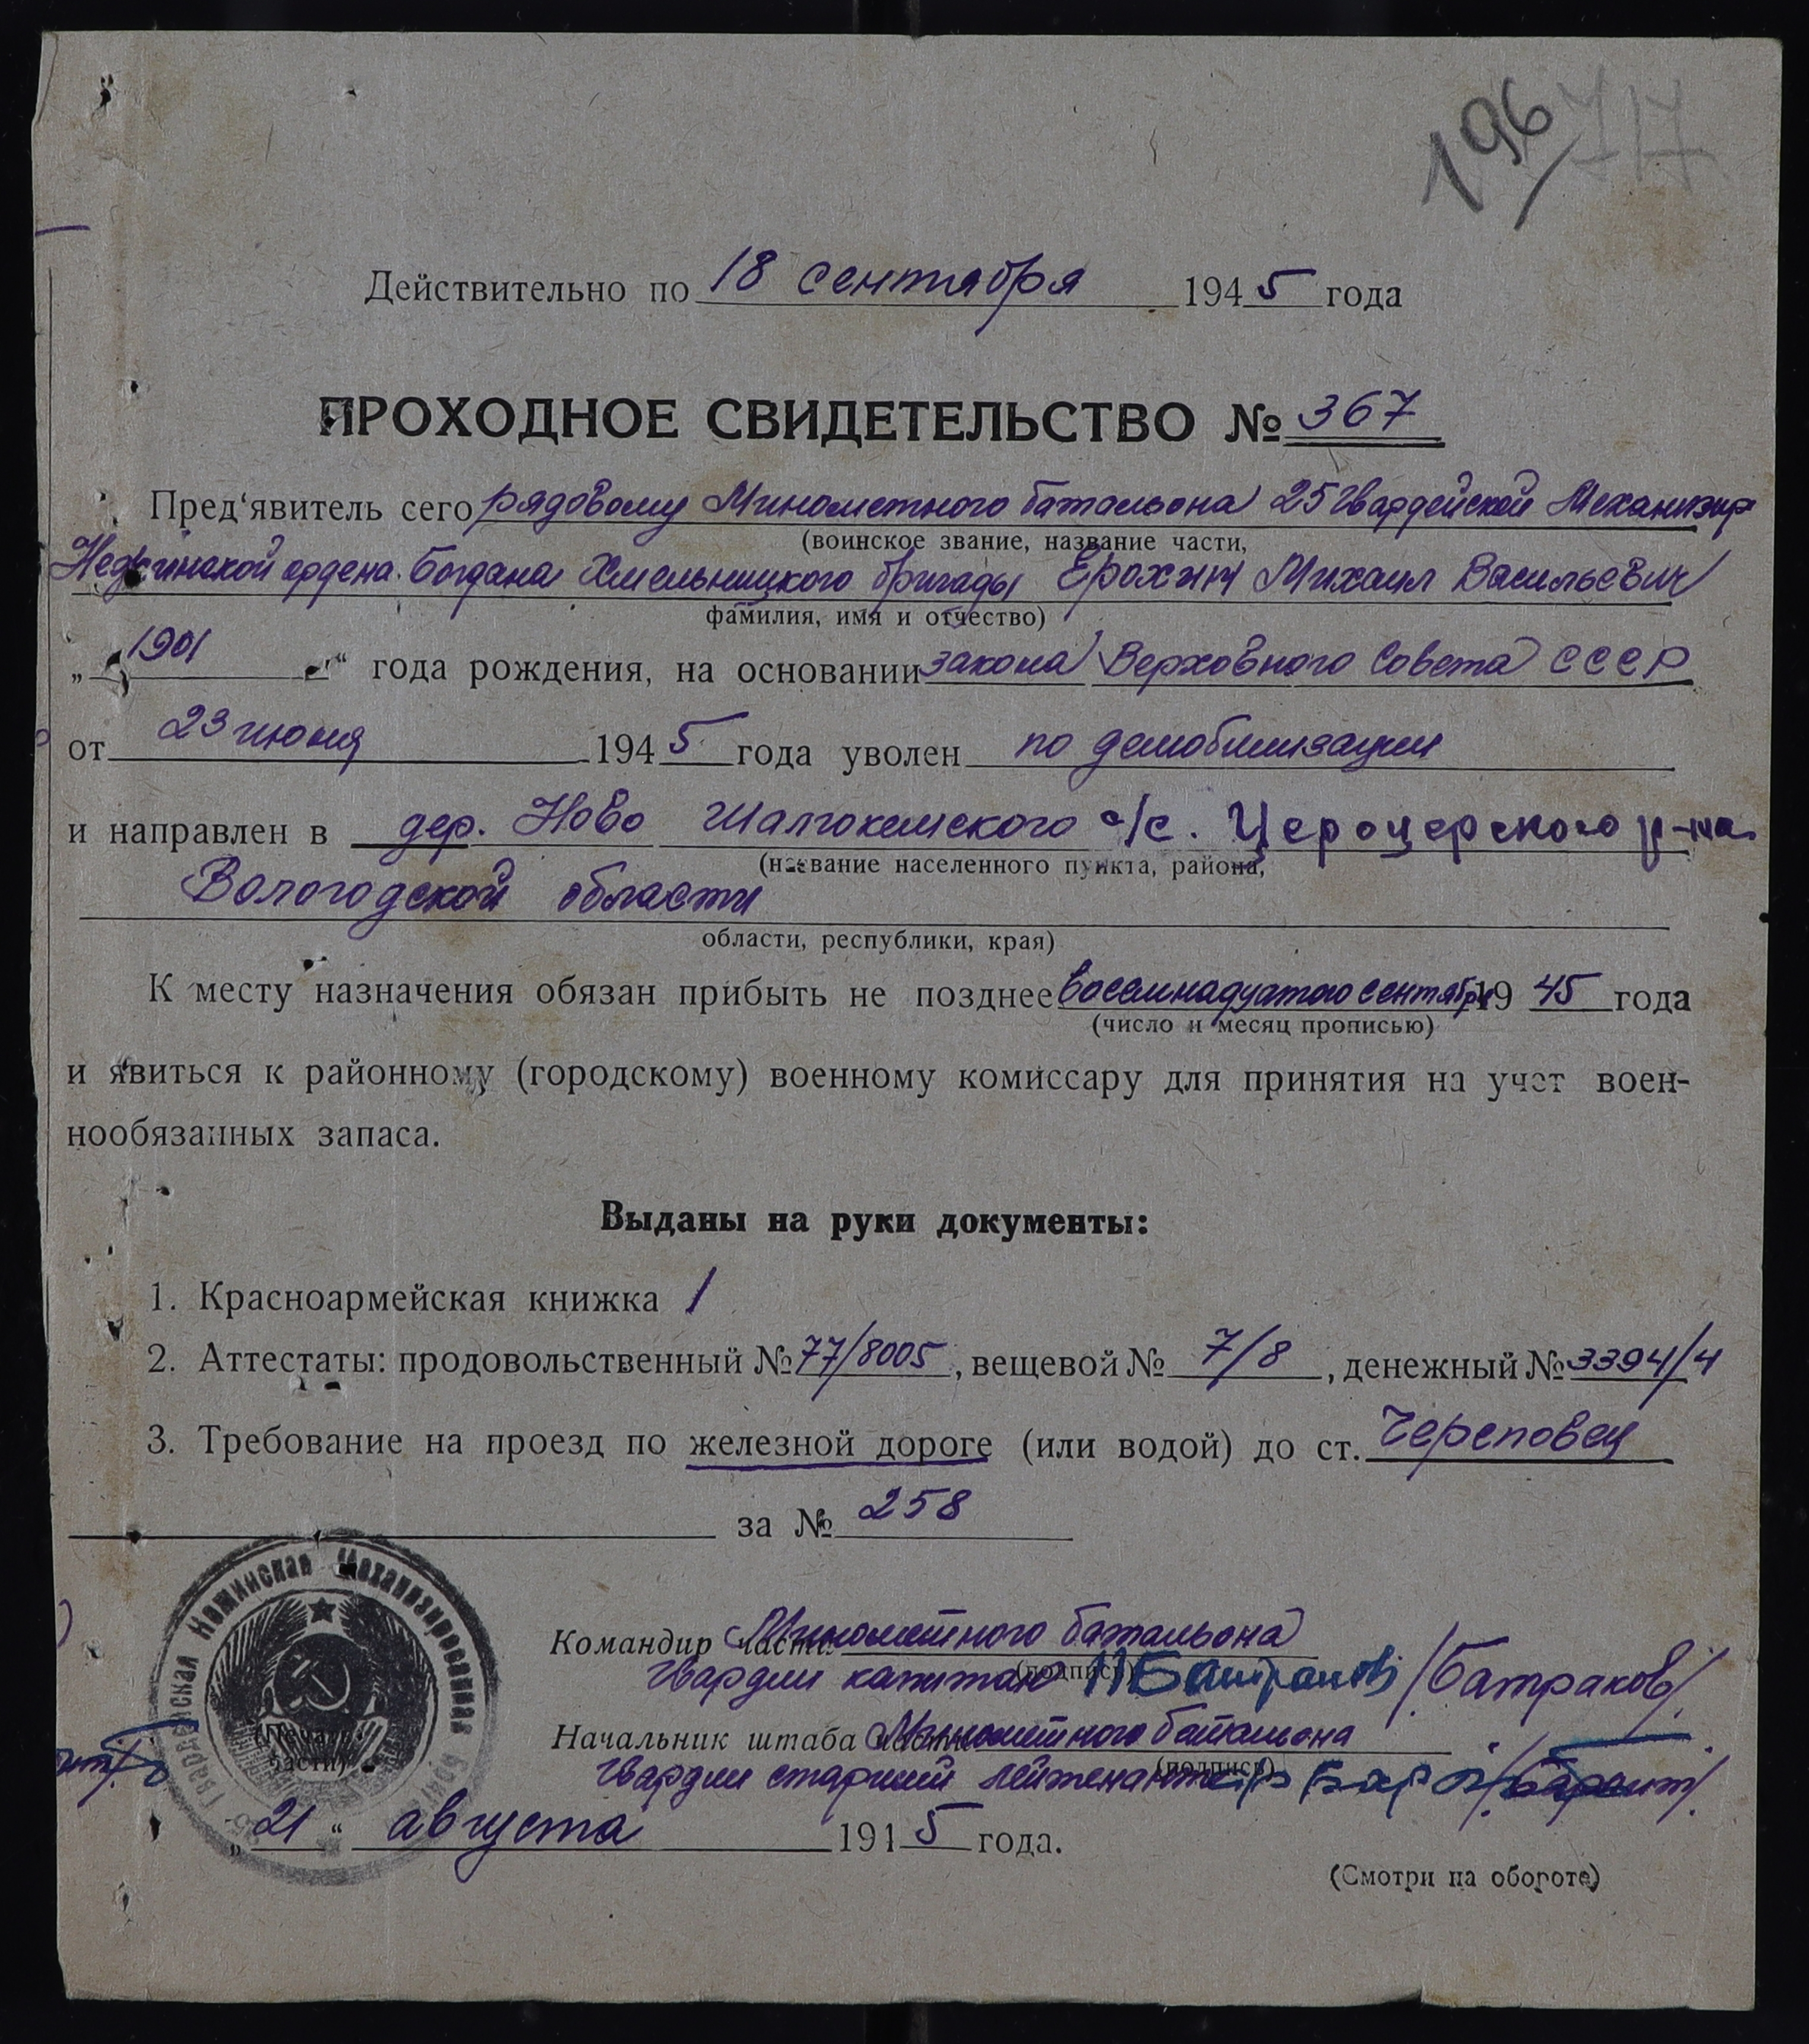 196/ 717
Действительно по 18 сентября 1945 года
ПРОХОДНОЕ СВИДЕТЕЛЬСТВО № 367
Пред'явитель сего рядовому Минометного батальона 25 Гвардейской Механизир
(воинское звание, название части,
Нежинской ордена Богдана Хмельницкого бригады Ерохин Михаил Васильевич
фамилия, имя и отчество)
„ 1901 “ года рождения, на основании закона Верховного Совета СССР
от 23 июня 1945 года уволен по демобилизации
и направлен в дер. Ново с/с. р-на
(название населенного пункта, района,
Вологодской области
области, республики, края)
К месту назначения обязан прибыть не позднее восемнадцатого сентября 1945 года
(число и месяц прописью)
и явиться к районному (городскому) военному комиссару для принятия на учет воен-
нообязанных запаса.
Выданы на руки документы:
1. Красноармейская книжка 1
2. Аттестаты: продовольственный № 77/8005, вещевой № 7/8, денежный № 3394/4
3. Требование на проезд по железной дороге (или водой) до ст. Череповец
за № 258
Гвардейская Нежинская Механизированная
(Печать
части)
Командир части Минометного батальона
(подпись)
Гвардии капитан Батраков /Батраков/
Начальник штаба части Минометного батальона
(подпись)
Гвардии старший лейтенант
„ 21 “ августа 1915 года.
(Смотри на обороте)